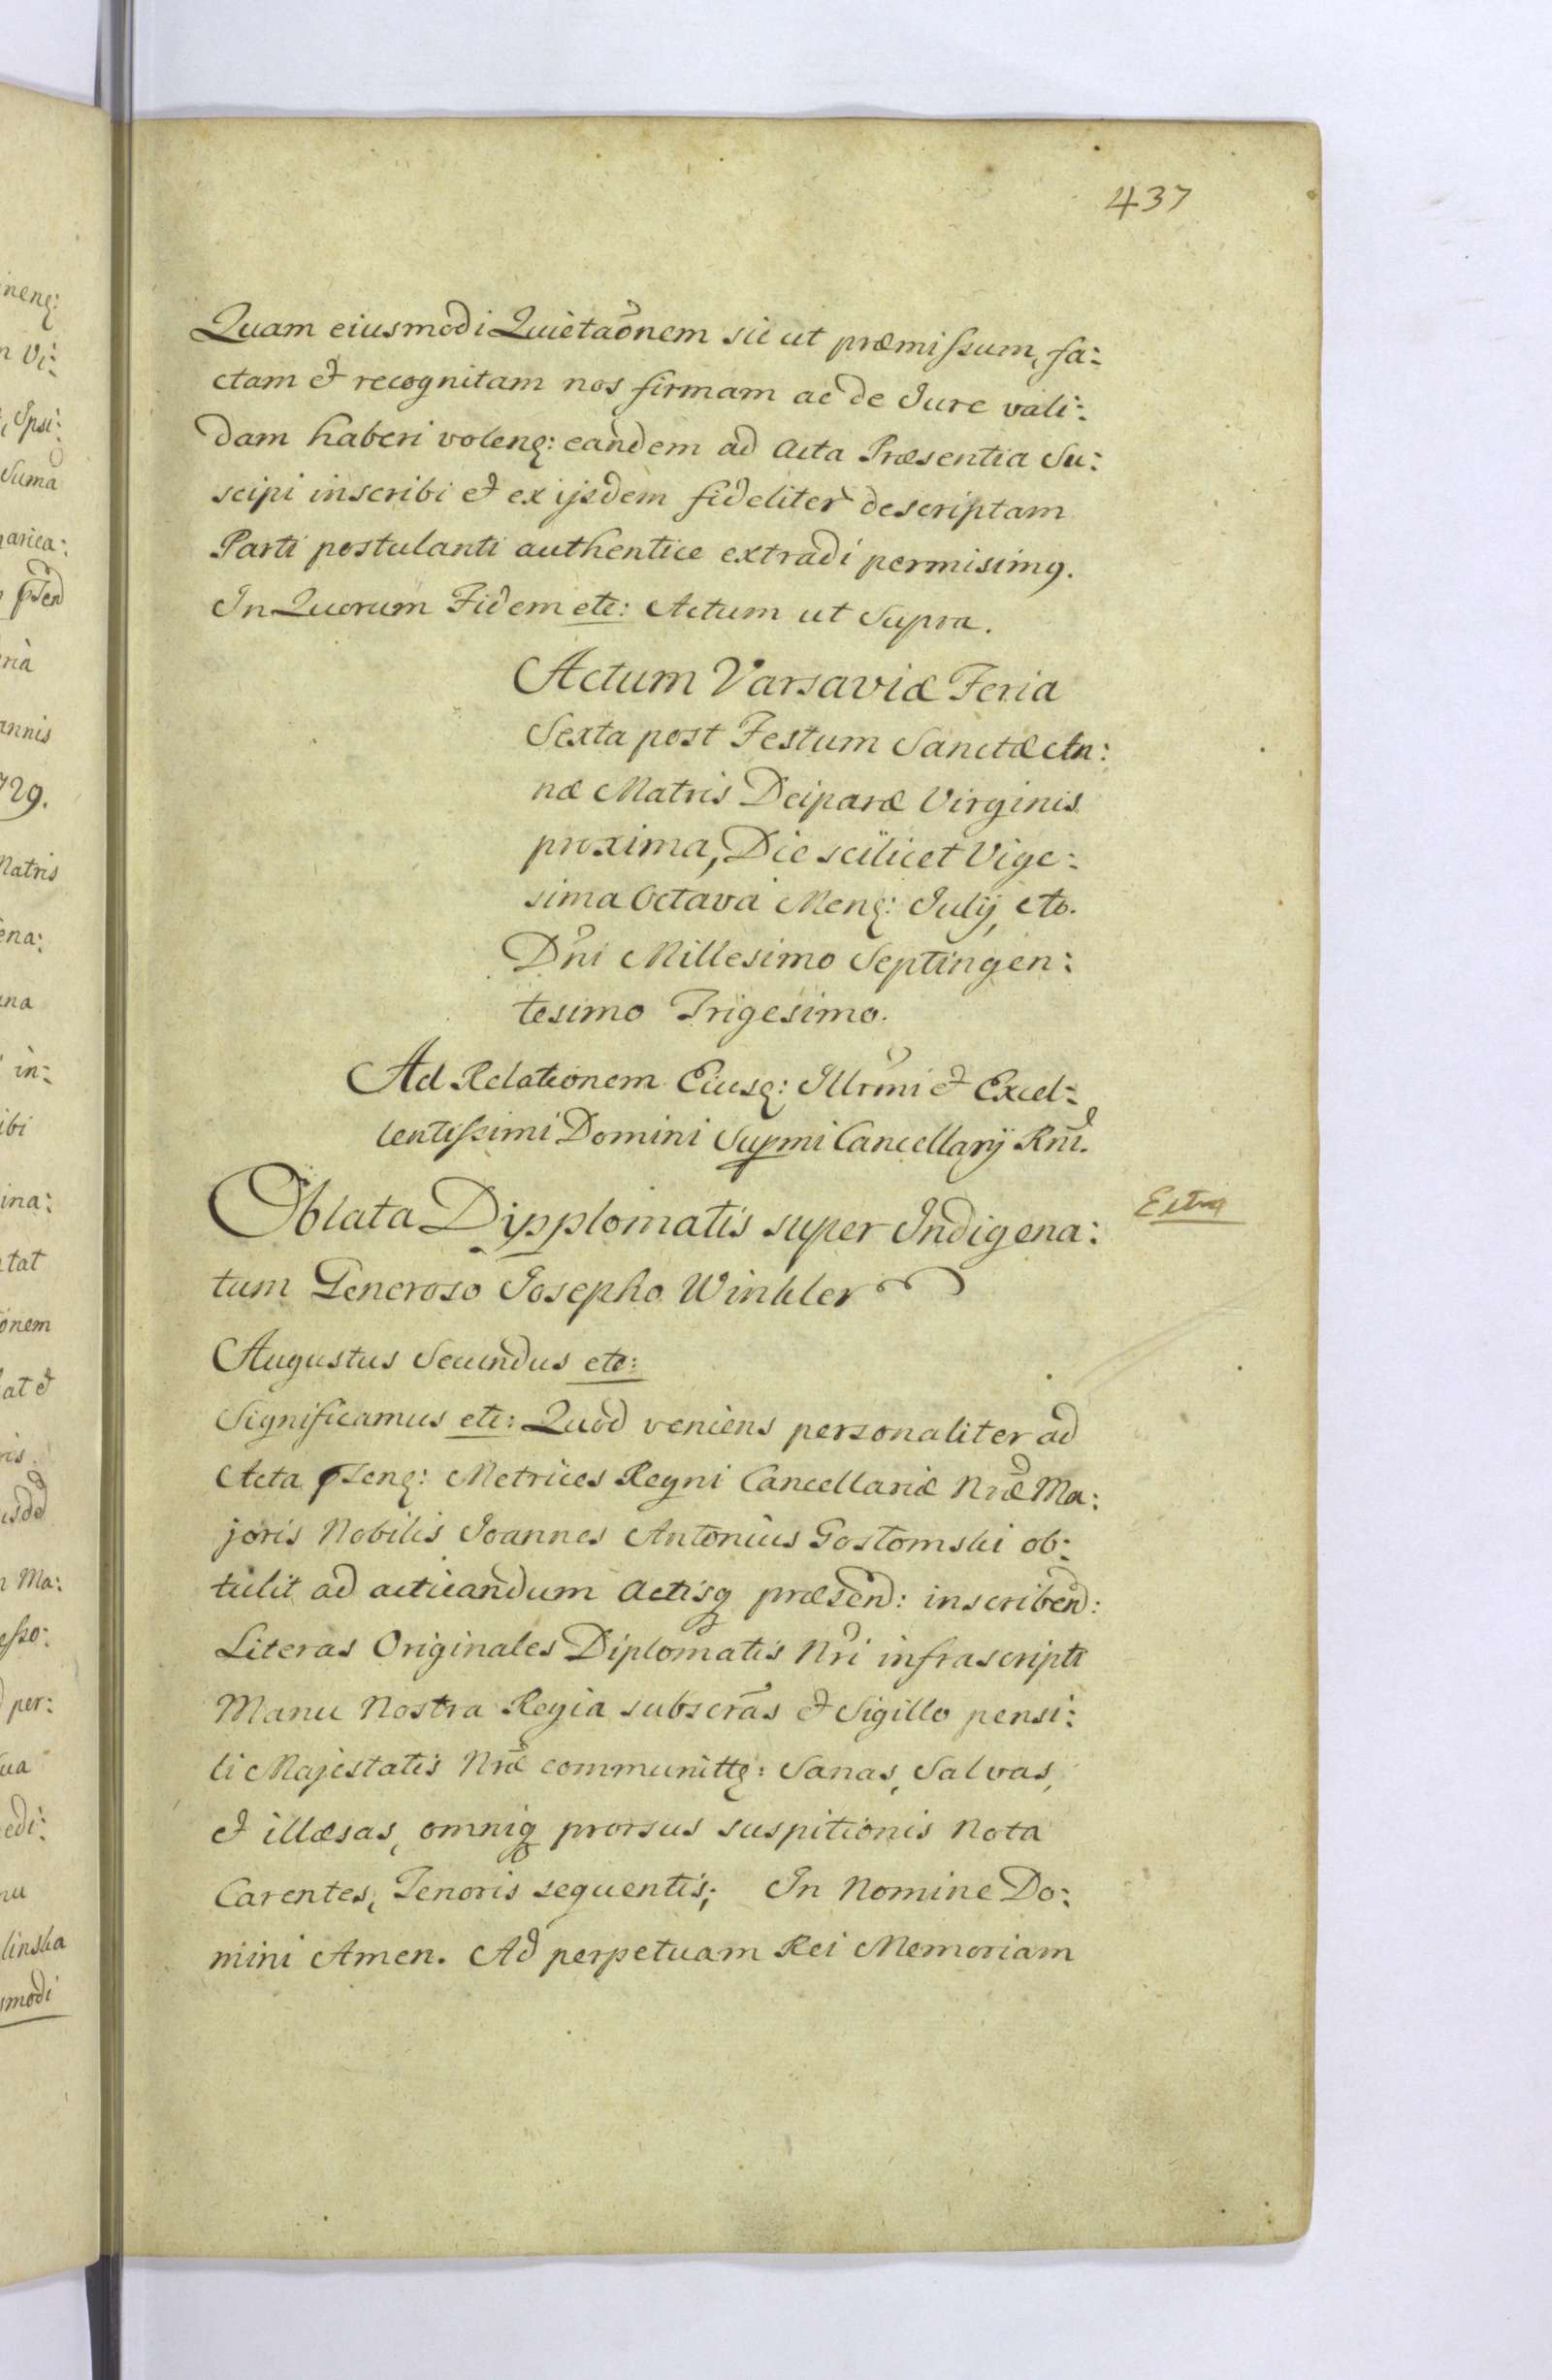 437
Quam eiusmodi Quietaõnem sic ut præmissum, fa:
ctam et recognitam nos firmam ac de Jure vali:
dam haberi volenq: eandem ad Acta Præsentia Su:
scipi inscribi et ex ijsdem fideliter descriptam
Parti postulanti authentice extradi permisimq.
In Quorum Fidem etc: Actum ut Supra.
Actum Varsaviæ Feria
Sexta post Festum Sanctæ An:
næ Matris Deiparæ Virginis
proxima, Die scilicet Vige:
sima Octava Menq: Julij, Ao.
Dñi Millesimo Septingen:
tesimo Trigesimo.
Ad Relationem Eiusq: Illrmi et Excel:
lentissimi Domini Supmi Cancellarij Rni.
Oblata Dipplomatis super Indigena:
tum Generoso Josepho Winkler
Augustus Secundus etc:
Significamus etc: Quod veniens personaliter ad
Acta pñsenq: Metrices Regni Cancellariæ Nræ Ma:
joris Nobilis Joannes Antonius Gostomski ob:
tulit ad acticandum Actisq præsend: inscribend:
Literas Originales Diplomatis Nri infrascripti
Manu Nostra Regia subscras et Sigillo pensi:
li Majestatis Nræ communittq: Sanas, Salvas,
et illæsas, omniq prorsus suspitionis Nota
Carentes, Tenoris sequentis; In Nomine Do:
mini Amen. Ad perpetuam Rei Memoriam